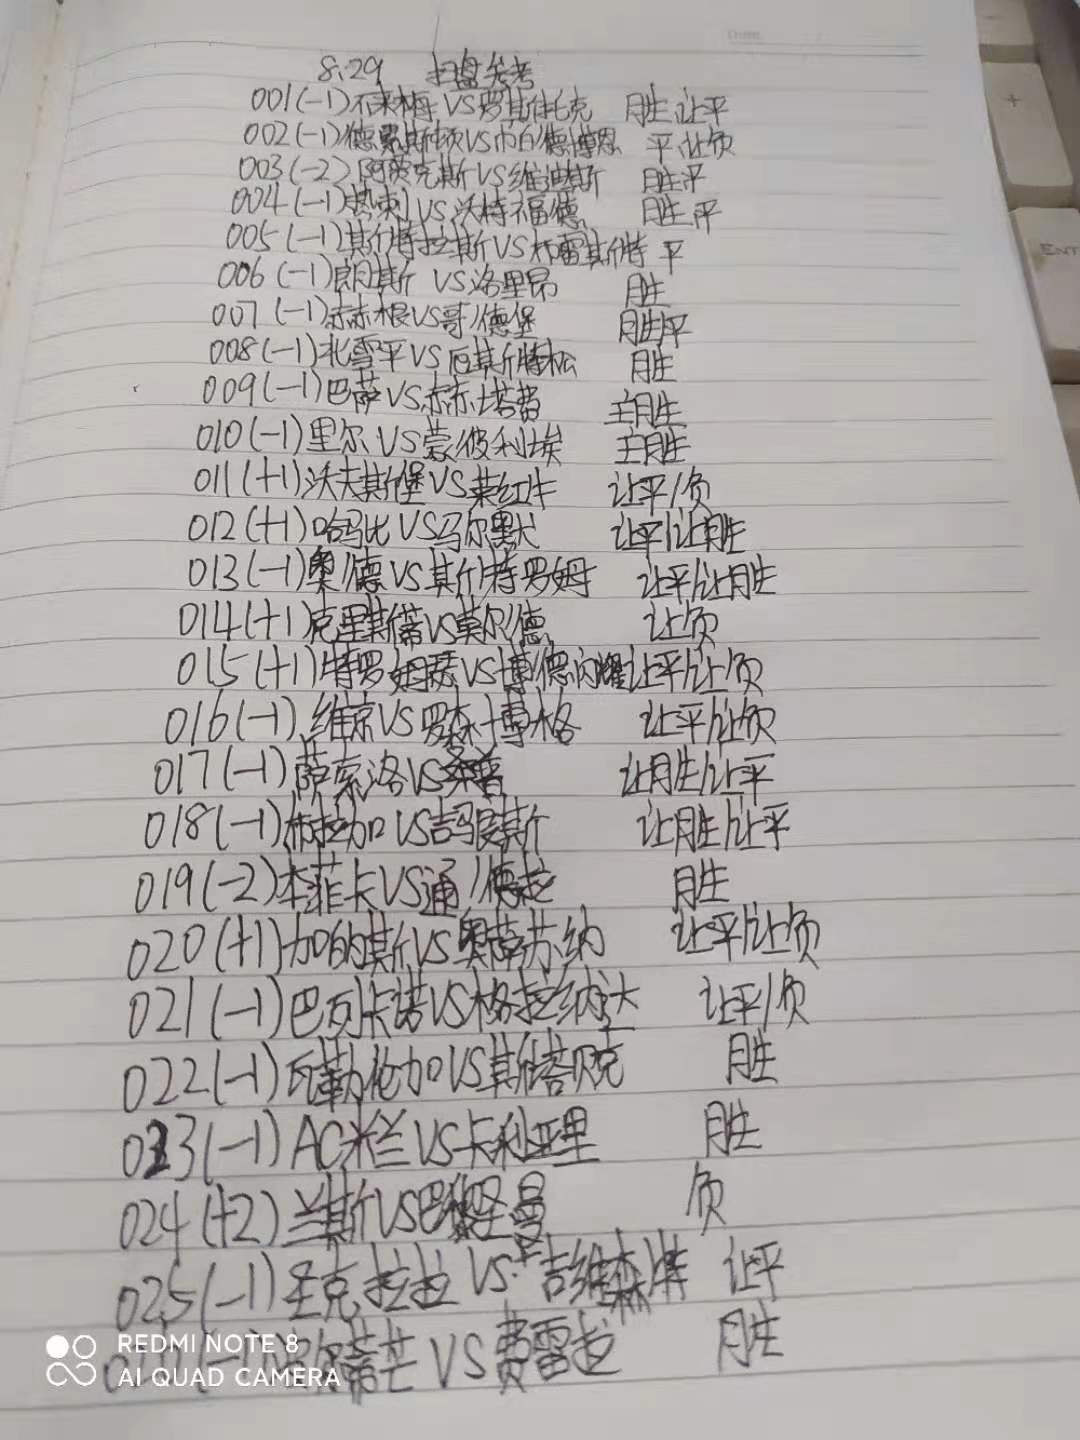 8.29 扫盘参考
001(-1)不来梅VS罗斯托克 胜 让平
002(-1)德累斯顿VS帕德博恩 平 让负
003(-2)阿贾克斯VS维迪斯 胜平
004(-1)热刺VS沃特福德 胜平
005(-1)斯特拉斯VS布雷斯特 平
006(-1)朗斯 VS洛里昂 胜
007(-1)赫根VS哥德堡 胜/平
008(-1)北雪平VS厄斯特松 胜
009(-1)巴萨VS赫塔费 主胜
010(-1)里尔VS蒙彼利埃 主胜
011(+1)沃夫斯堡VS莱红牛 让平/负
012(+1)哈马比VS马尔默 让平/让胜
013(-1)奥德VS斯特罗姆 让平/让胜
014(+1)克里斯蒂VS莫尔德 让负
015(+1)特罗姆瑟VS博德闪耀 让平/让负
016(-1)维京VS罗森博格 让平/让负
017(-1)萨索洛VS桑普 让胜/让平
018(-1)布拉加VS吉马良斯 让胜/让平
019(-2)本菲卡VS通德拉 胜
020(+1)加的斯VS奥萨苏纳 让平/让负
021(-1)巴列卡诺VS格拉纳达 让平/负
022(-1)瓦勒伦加VS斯塔贝克 胜
023(-1)AC米兰VS卡利亚里 胜
024(+2)兰斯VS巴黎圣曼 负
025(-1)圣克拉拉VS吉维森特 让平
(-1) 蒂芒VS费雷拉 胜
REDMI NOTE 8
AI QUAD CAMERA